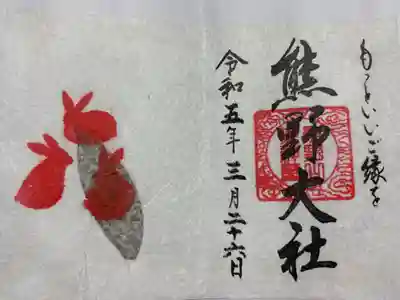 もっといいご縁を
熊野大社
令和五年三月二十六日